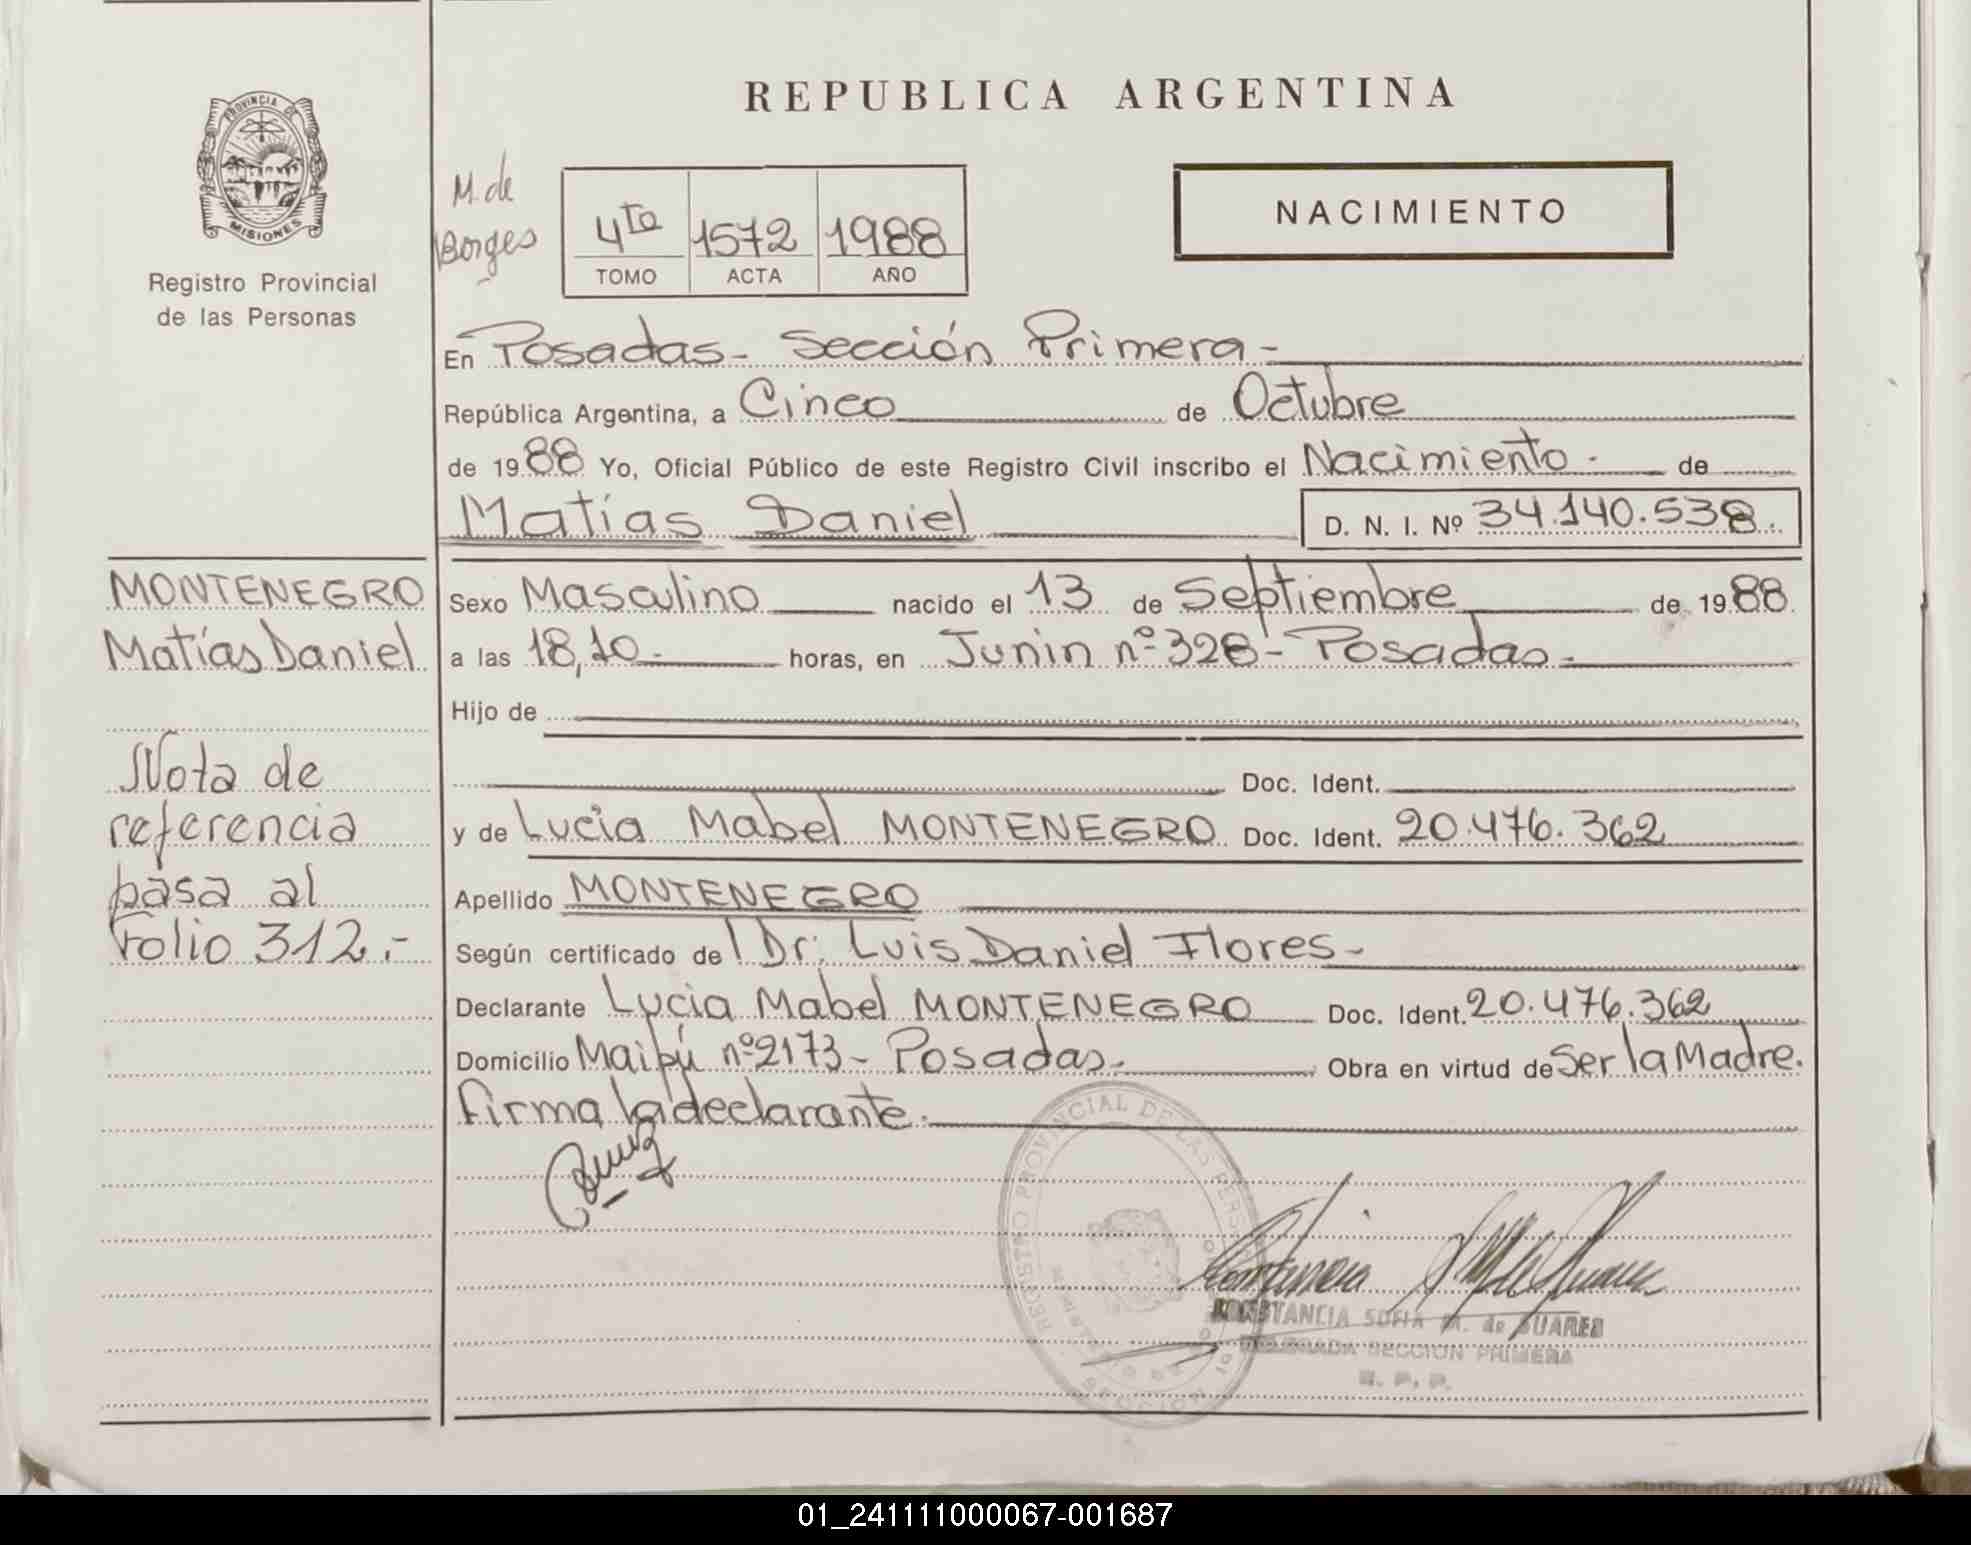 REPUBLICA ARGENTINA
PROVINCIA DE
MISIONES
Registro Provincial
de las Personas
M. de
Borges
4to 1572 1988
TOMO ACTA AÑO
NACIMIENTO
En Posadas - Sección Primera -
República Argentina, a Cinco de Octubre
de 1988 Yo, Oficial Público de este Registro Civil inscribo el Nacimiento - de
Matías Daniel D. N. I. Nº 34.140.538.
MONTENEGRO
Matías Daniel
Nota de
referencia
pasa al
Folio 312.-
Sexo Masculino nacido el 13 de Septiembre de 1988
a las 18,10 - horas, en Junin nº 328 - Posadas -
Hijo de
Doc. Ident.
y de Lucia Mabel MONTENEGRO Doc. Ident. 20.476.362
Apellido MONTENEGRO
Según certificado del Dr: Luis Daniel Flores -
Declarante Lucia Mabel MONTENEGRO Doc. Ident. 20.476.362
Domicilio Maipú nº 2173 - Posadas - Obra en virtud de Ser la Madre.
Firma la declarante -
REGISTRO PROVINCIAL DE LAS PERSONAS
CONSTANCIA SOFIA M. de SUAREZ
DELEGADA SECCION PRIMERA
R. P. P.
01_241111000067-001687